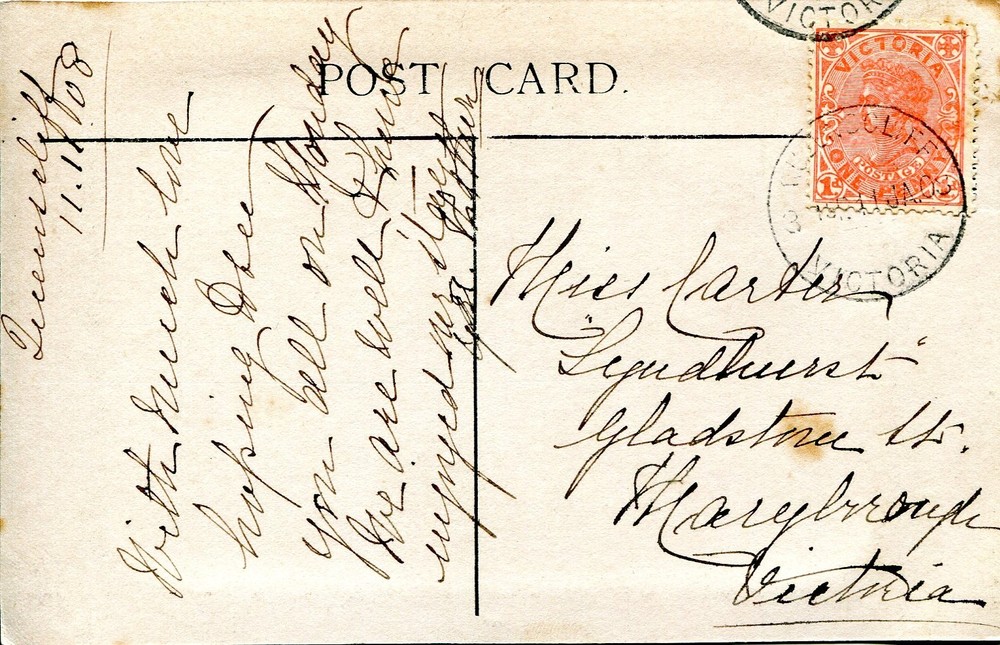 POST CARD.
VICTORIA
VICTORIA
ONE PENNY
POSTAGE
1d
QUEENSCLIFF
11 JA 08
VICTORIA
Queenscliff
11.1.08
With much love
hoping to see
you all on Monday
We are well & have
enjoyed our stay
Miss Carter
"Lyndhurst"
Gladstone St.
Maryborough
Victoria